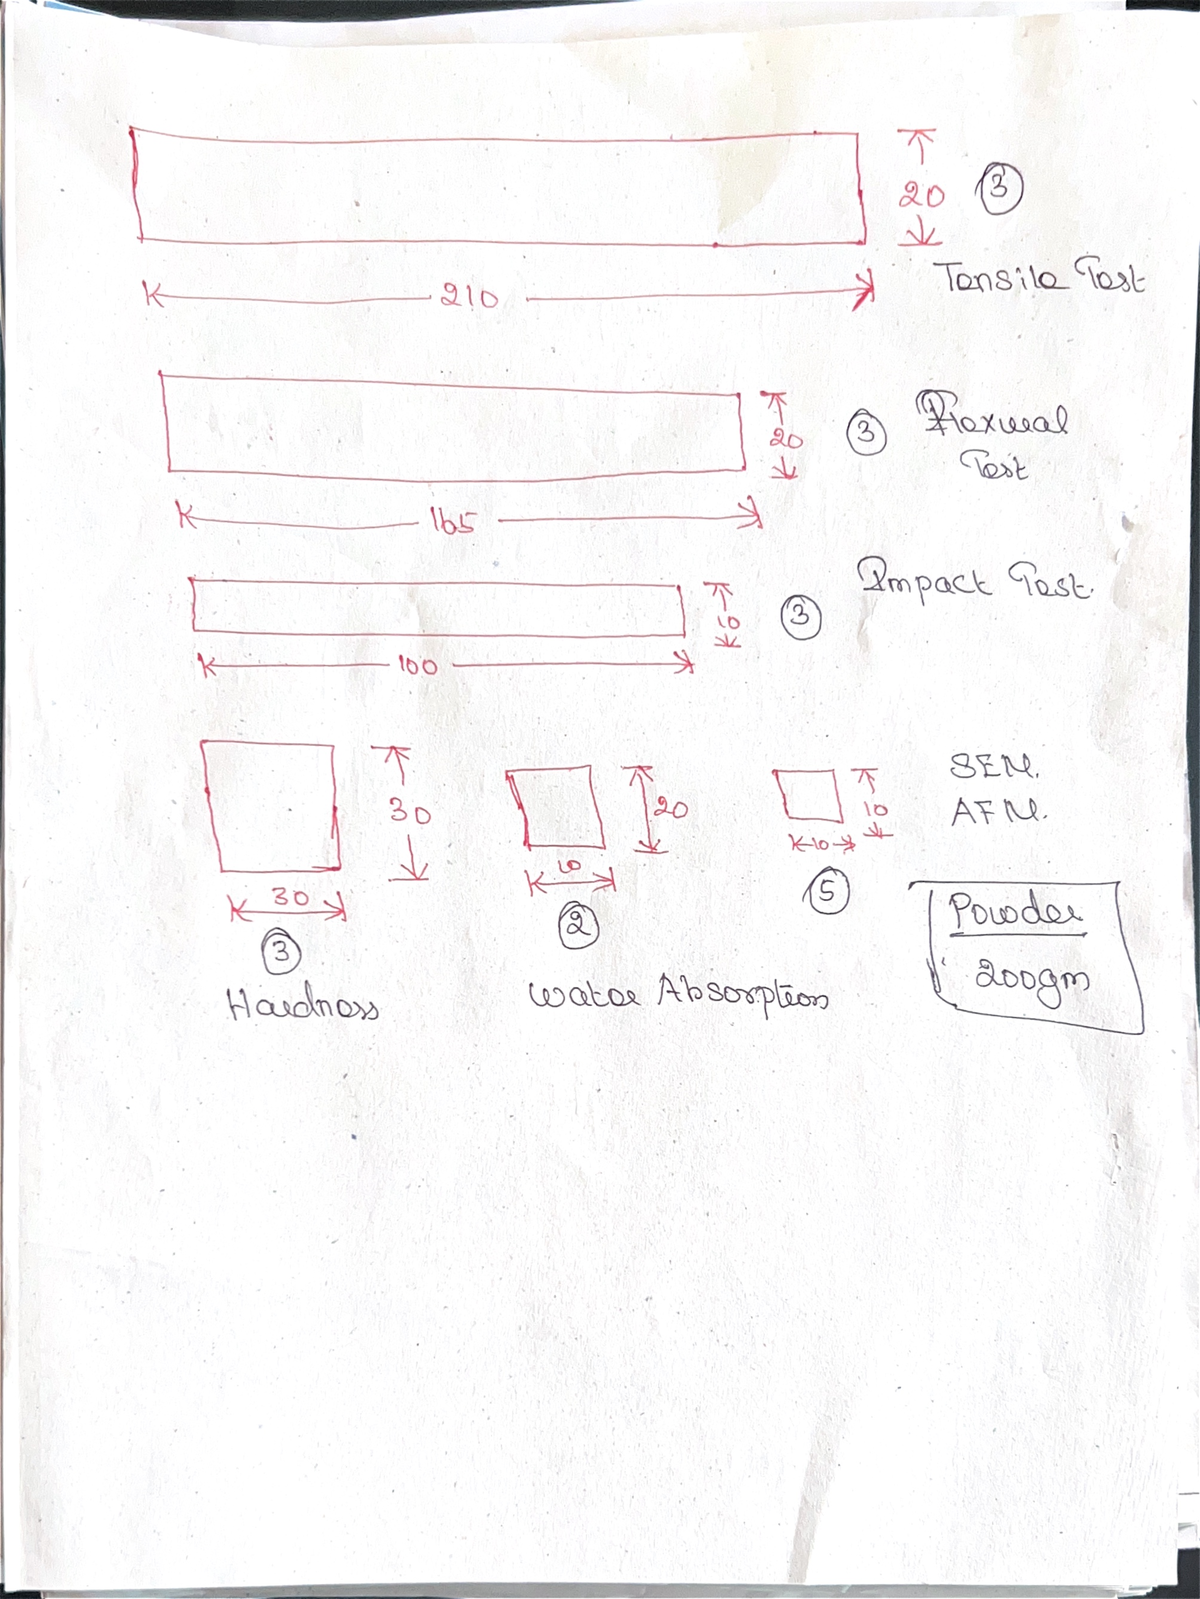 20
3
Tensile Test
210
20
3
Flexural
Test
165
Impact Test.
10
3
100
30
30
3
Hardness
20
10
2
Water Absorption
10
10
5
SEM.
AFM.
Powder
200gm